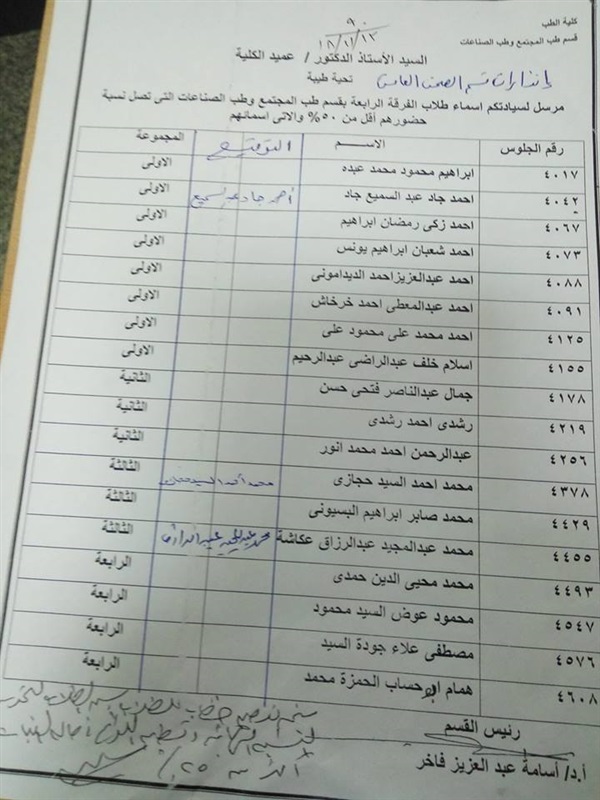 كلية الطب
قسم طب المجتمع وطب الصناعات
٩٠
١٨/١١/١٣
السيد الأستاذ الدكتور / عميد الكلية
تحية طيبة
مرسل لسيادتكم اسماء طلاب الفرقة الرابعة بقسم طب المجتمع وطب الصناعات التى تصل نسبة
حضورهم أقل من ٥٠% والاتى اسمائهم
رقم الجلوس الاســـم التوقيع المجموعة
٤٠١٧ ابراهيم محمود محمد عبده الاولى
٤٠٤٢ احمد جاد عبد السميع جاد احمد جاد عبدالسميع الاولى
٤٠٦٧ احمد زكى رمضان ابراهيم الاولى
٤٠٧٣ احمد شعبان ابراهيم يونس الاولى
٤٠٨٨ احمد عبدالعزيزاحمد الديدامونى الاولى
٤٠٩١ احمد عبدالمعطى احمد خرخاش الاولى
٤١٢٥ احمد محمد على محمود على الاولى
٤١٥٥ اسلام خلف عبدالراضى عبدالرحيم الاولى
٤١٧٨ جمال عبدالناصر فتحى حسن الثانية
٤٢١٩ رشدى احمد رشدى الثانية
٤٢٥٦ عبدالرحمن احمد محمد انور الثانية
٤٣٧٨ محمد احمد السيد حجازى محمد أحمد السيد الثالثة
٤٤٢٩ محمد صابر ابراهيم البسيونى الثالثة
٤٤٥٥ محمد عبدالمجيد عبدالرزاق عكاشة محمد عبدالمجيد عبدالرازق الثالثة
٤٤٩٣ محمد محيى الدين حمدى الرابعة
٤٥٤٧ محمود عوض السيد محمود الرابعة
٤٥٧٦ مصطفى علاء جودة السيد الرابعة
٤٦٠٨ همام ابوحساب الحمزة محمد الرابعة
رئيس القسم
أ.د/ أسامة عبد العزيز فاخر